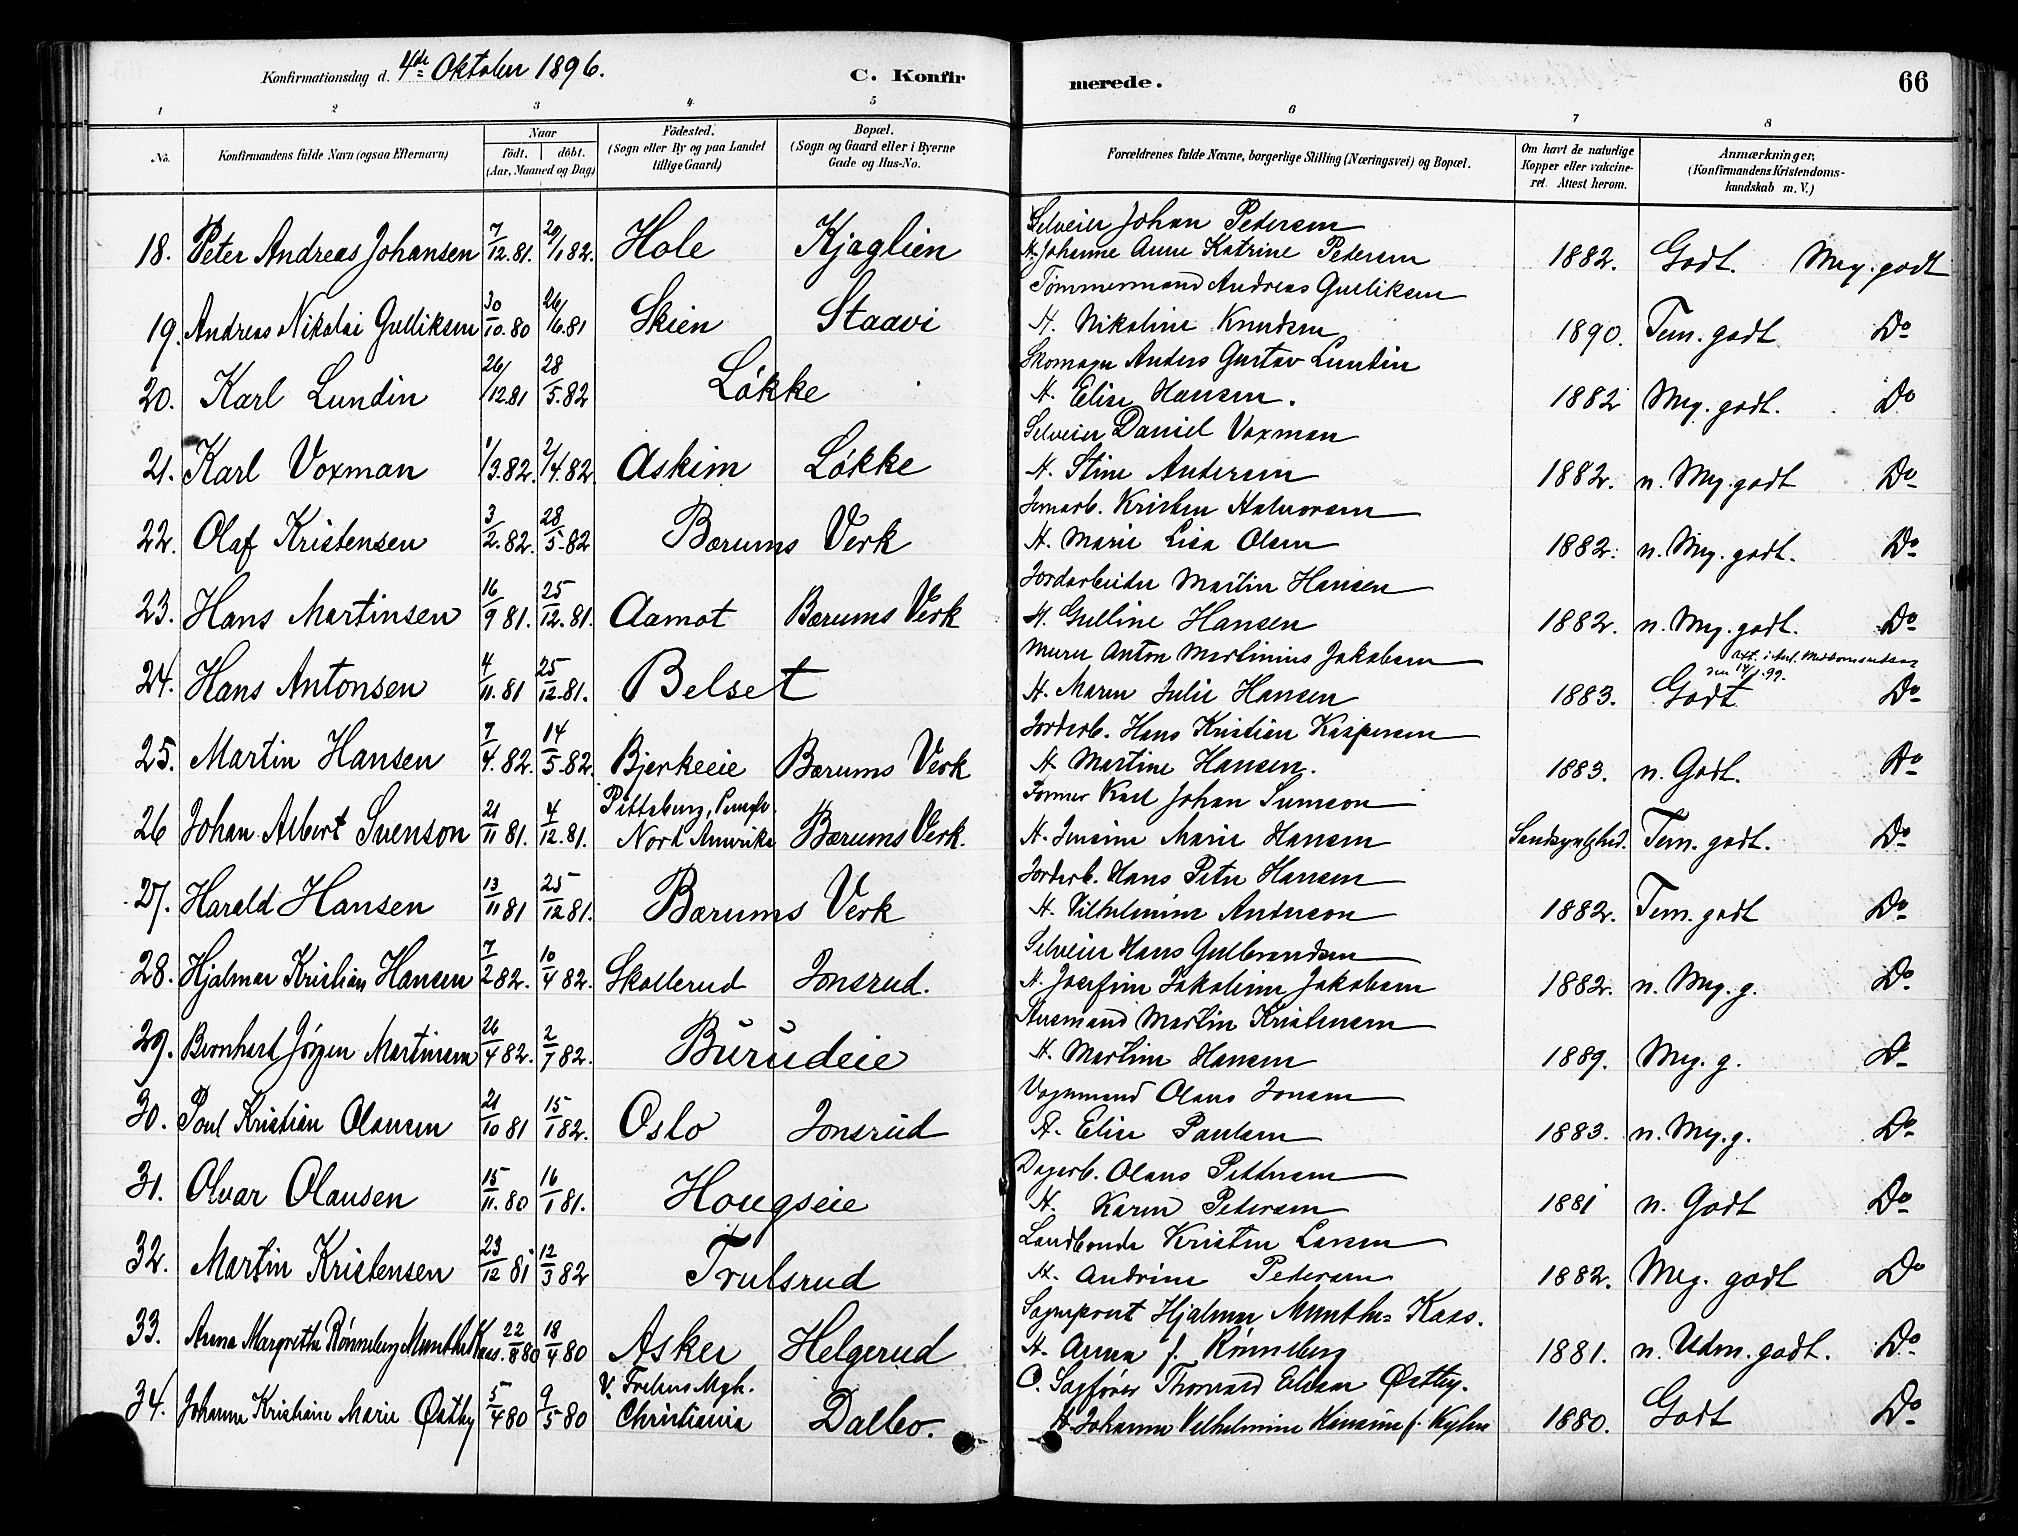 Konfirmationsdag d. 4de Oktober 1896. C. Konfirmerede. 66
1 2 3 4 5 6 7 8
No. Konfirmandens fulde Navn (ogsaa Efternavn) Naar født. døbt. (Aar, Maaned og Dag) Fødested. (Sogn eller By og paa Landet tillige Gaard) Bopæl. (Sogn og Gaard eller i Byerne Gade og Hus-No. Forældrenes fulde Navne, borgerlige Stilling (Næringsvei) og Bopæl. Om havt de naturlige Kopper eller vakcineret. Attest herom. Anmærkninger. (Konfirmandens Kristendomskundskab m. V.)
Selveier Johan Pedersen
18. Peter Andreas Johansen 7/12.81. 20/1 82. Hole Kjaglien H. Johanne Anne Katrine Pedersen 1882. Godt. Meg. godt
Tømmermand Andreas Gulliksen
19. Andreas Nikolai Gulliksen 30/10.80 26/6.81 Skien Staavi H. Nikoline Knudsen 1890. Tem. godt Do
Skomager Anders Gustav Lundin
20. Karl Lundin 26/12.81 28/5.82 Løkke H. Elise Hansen. 1882 Meg. godt. Do
Selveier Daniel Voxman
21. Karl Voxman 1/3.82. 2/4.82. Askim Løkke H. Stine Andersen 1882. n. Meg. godt Do
Jernarb. Kristen Halvorsen
22. Olaf Kristensen 3/2.82. 28/5.82 Bærums Verk H. Marie Lisa Olsen 1882. n. Meg. godt. Do
Jordarbeider Martin Hansen
23. Hans Martinsen 16/9 81. 25/12.81. Aamot Bærums Verk H. Gulline Hansen 1882. n. Meg. godt. Do
Murer Anton Martinius Jakobsen
24. Hans Antonsen 4/11.81 25/12.81. Belset H. Maren Julie Hansen 1883. Godt Do
Jordarb. Hans Kristian Kaspersen
25. Martin Hansen 7/4.82. 14/5.82. Bjerkeeie Bærums Verk H. Martine Hansen. 1883. n. Godt. Do
Pittsburg, Former Karl Johan Svenson
26 Johan Albert Svenson 21/11 81. 4/12.81. Nord Amerika Bærums Verk. H. Jensine Marie Hansen Tem. godt. Do
Jordarb. Hans Peter Hansen
27. Harald Hansen 13/11 81 25/12 81. Bærums Verk H. Vilhelmine Anderson 1882. Tem. godt Do
Selveier Hans Gulbrandsen
28. Hjalmar Kristian Hansen 7/2 82. 10/4 82. Skollerud Jonsrud. H. Josefine Jakobine Jakobsen 1882. n. Meg. g. Do
Husmand Martin Kristensen
29. Bernhard Jørgen Martinsen 26/4 82. 2/7 82. Burudeie H. Martine Hansen 1889. Meg. g. Do
Vognmand Olaus Jonsen
30. Poul Kristian Olausen 21/10 81 15/1 82. Oslo Jonsrud H. Elise Paulsen 1883. n. Meg. g. Do
Dagarb. Olaus Pettersen
31. Olvar Olausen 15/11.80 16/1 81. Hougseie H. Karen Pedersen 1881 n. Godt Do
Landbonde Kristen Larsen
32. Martin Kristensen 23/12 81 12/3 82 Trulsrud H. Andrine Pedersen 1882. Meg. godt Do
Sogneprest Hjalmar Munthe-Kaas.
33. Anna Margrethe Rønneberg Munthe Kaas. 22/8 80 18/4 80 Asker Helgerud H. Anna f. Rønneberg 1881. n. Udm. godt. Do
V. Frelsers Mgh. O. Sagfører Thorvald Østby.
34. Johanne Kristiane Marie Østby 5/4 80 9/5 80 Christiania Dalbo. H. Johanne Vilhelmine 1880. Godt Do